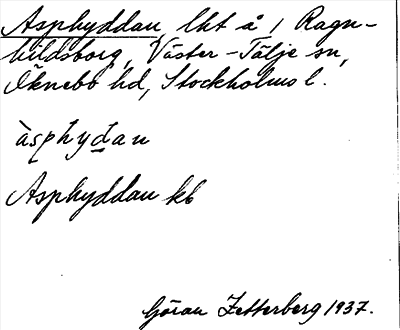 Asphyddan, lht å 1 Ragn-
hildsborg, Väster-Tälje sn,
Öknebo hd, Stockholms l.
àsphydan
Asphyddan kb
Göran Zetterberg 1937.